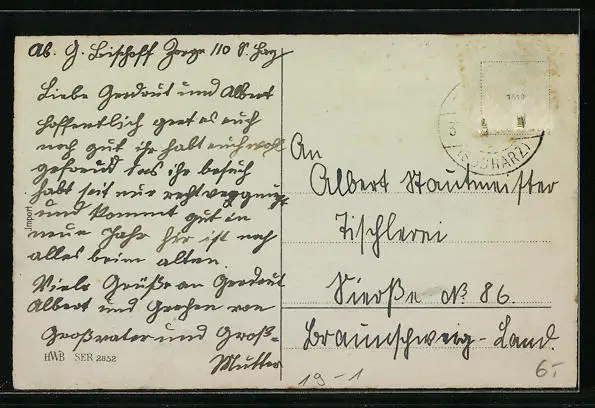 Ab. G. Bischoff Zorge 110 S. Harz
Liebe Gerdaut und Albert
hoffentlich geet es euch
noch gut ihr habt euch wohl
gefreud das ihr besuch
habt seit nur recht vergnügt
und kommt gut in
neue Jahr hir ist noch
alles beim alten.
Viele Grüße an Gerdaut
Albert und Gretchen von
Großvater und Groß-
Mutter
Import
HWB SER 2852
(SÜDHARZ)
An
Albert Stautmeister
Tischlerei
Sierße No 86.
Braunschweig-Land.
19-1
6.-